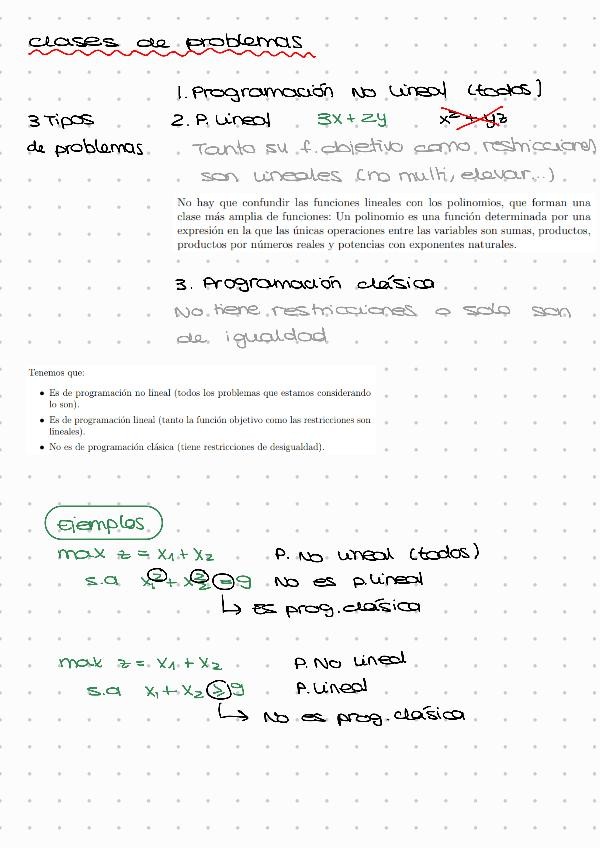 clases de problemas
1. Programación No lineal (todos)
3 Tipos de problemas
2. P. lineal 3x + 2y x² + yz
Tanto su f. objetivo como restricciones
son lineales (no multi, elevar...)
No hay que confundir las funciones lineales con los polinomios, que forman una
clase más amplia de funciones: Un polinomio es una función determinada por una
expresión en la que las únicas operaciones entre las variables son sumas, productos,
productos por números reales y potencias con exponentes naturales.
3. Programación clásica
No tiene restricciones o solo son
de igualdad
Tenemos que:
• Es de programación no lineal (todos los problemas que estamos considerando
lo son).
• Es de programación lineal (tanto la función objetivo como las restricciones son
lineales).
• No es de programación clásica (tiene restricciones de desigualdad).
ejemplos
max z = x₁ + x₂ P. No lineal (todos)
s.a x₁² + x₂² = 9 No es p. lineal
↳ es prog. clásica
max z = x₁ + x₂ P. No lineal
s.a x₁ + x₂ ≥ 9 P. lineal
↳ No es prog. clásica